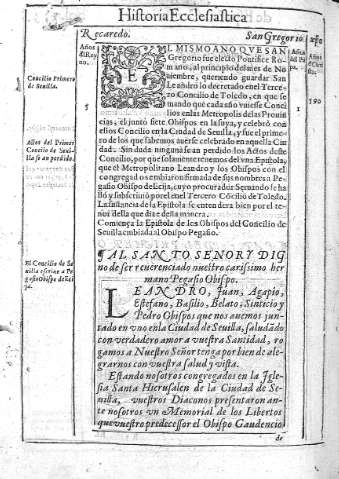 Historia Ecclesiastica
Recaredo.
San Gregorio
Años del Reyno.
Años del Papa.
Años de Christo.
EL MISMO AÑO QVE SAN
Gregorio fue electo Pontifice Romano,
al principio del mes de Nouiembre,
queriendo guardar San
Leandro lo decretado en el Tercero
Concilio de Toledo, en que se
mando que cada año vuiesse Concilios
en las Metropolis de las Prouincias,
el junto siete Obispos en la suya, y celebrò con
ellos Concilio en la Ciudad de Seuilla, y fue el primero
de los que sabemos auerse celebrado en aquella Ciudad.
Sin duda ninguna se an perdido los Actos deste
Concilio, por que solamente tenemos del vna Epistola,
que el Metropolitano Leandro y los Obispos con el
congregados embiaron firmada de sus nombres a Pegasio
Obispo de Ecija, cuyo procurador Seruando se hallò
y subscriuiò por el en el Tercero Concilio de Toledo.
La sustancia de la Epistola se entendera bien por el tenor
della que dize desta manera.
Comença la Epistola de los Obispos del Concilio de
Seuilla embiada al Obispo Pegasio.
Concilio Primero
de Seuilla.
5
1
590
Actos del Primer
Concilio de Seuilla
se an perdido.
¶ AL SANTO SEÑOR Y DIGno
de ser reuerenciado nuestro carissimo hermano
Pegasio Obispo.
El Concilio de Seuilla
escriue a Pegasio
Obispo de Ecija
LEANDRO, Juan, Agapio,
Estefano, Basilio, Belato, Sinticio y
Pedro Obispos que nos auemos juntado
en vno en la Ciudad de Seuilla, saludãdo
con verdadero amor a vuestra Santidad, rogamos
a Nuestro Señor tenga por bien de alegrarnos
con vuestra salud y vista.
Estando nosotros congregados en la Iglesia
Santa Hierusalen de la Ciudad de Seuilla,
vuestros Diaconos presentaron ante
nosotros vn Memorial de los Libertos
que vuestro predecessor el Obispo Gaudencio
de